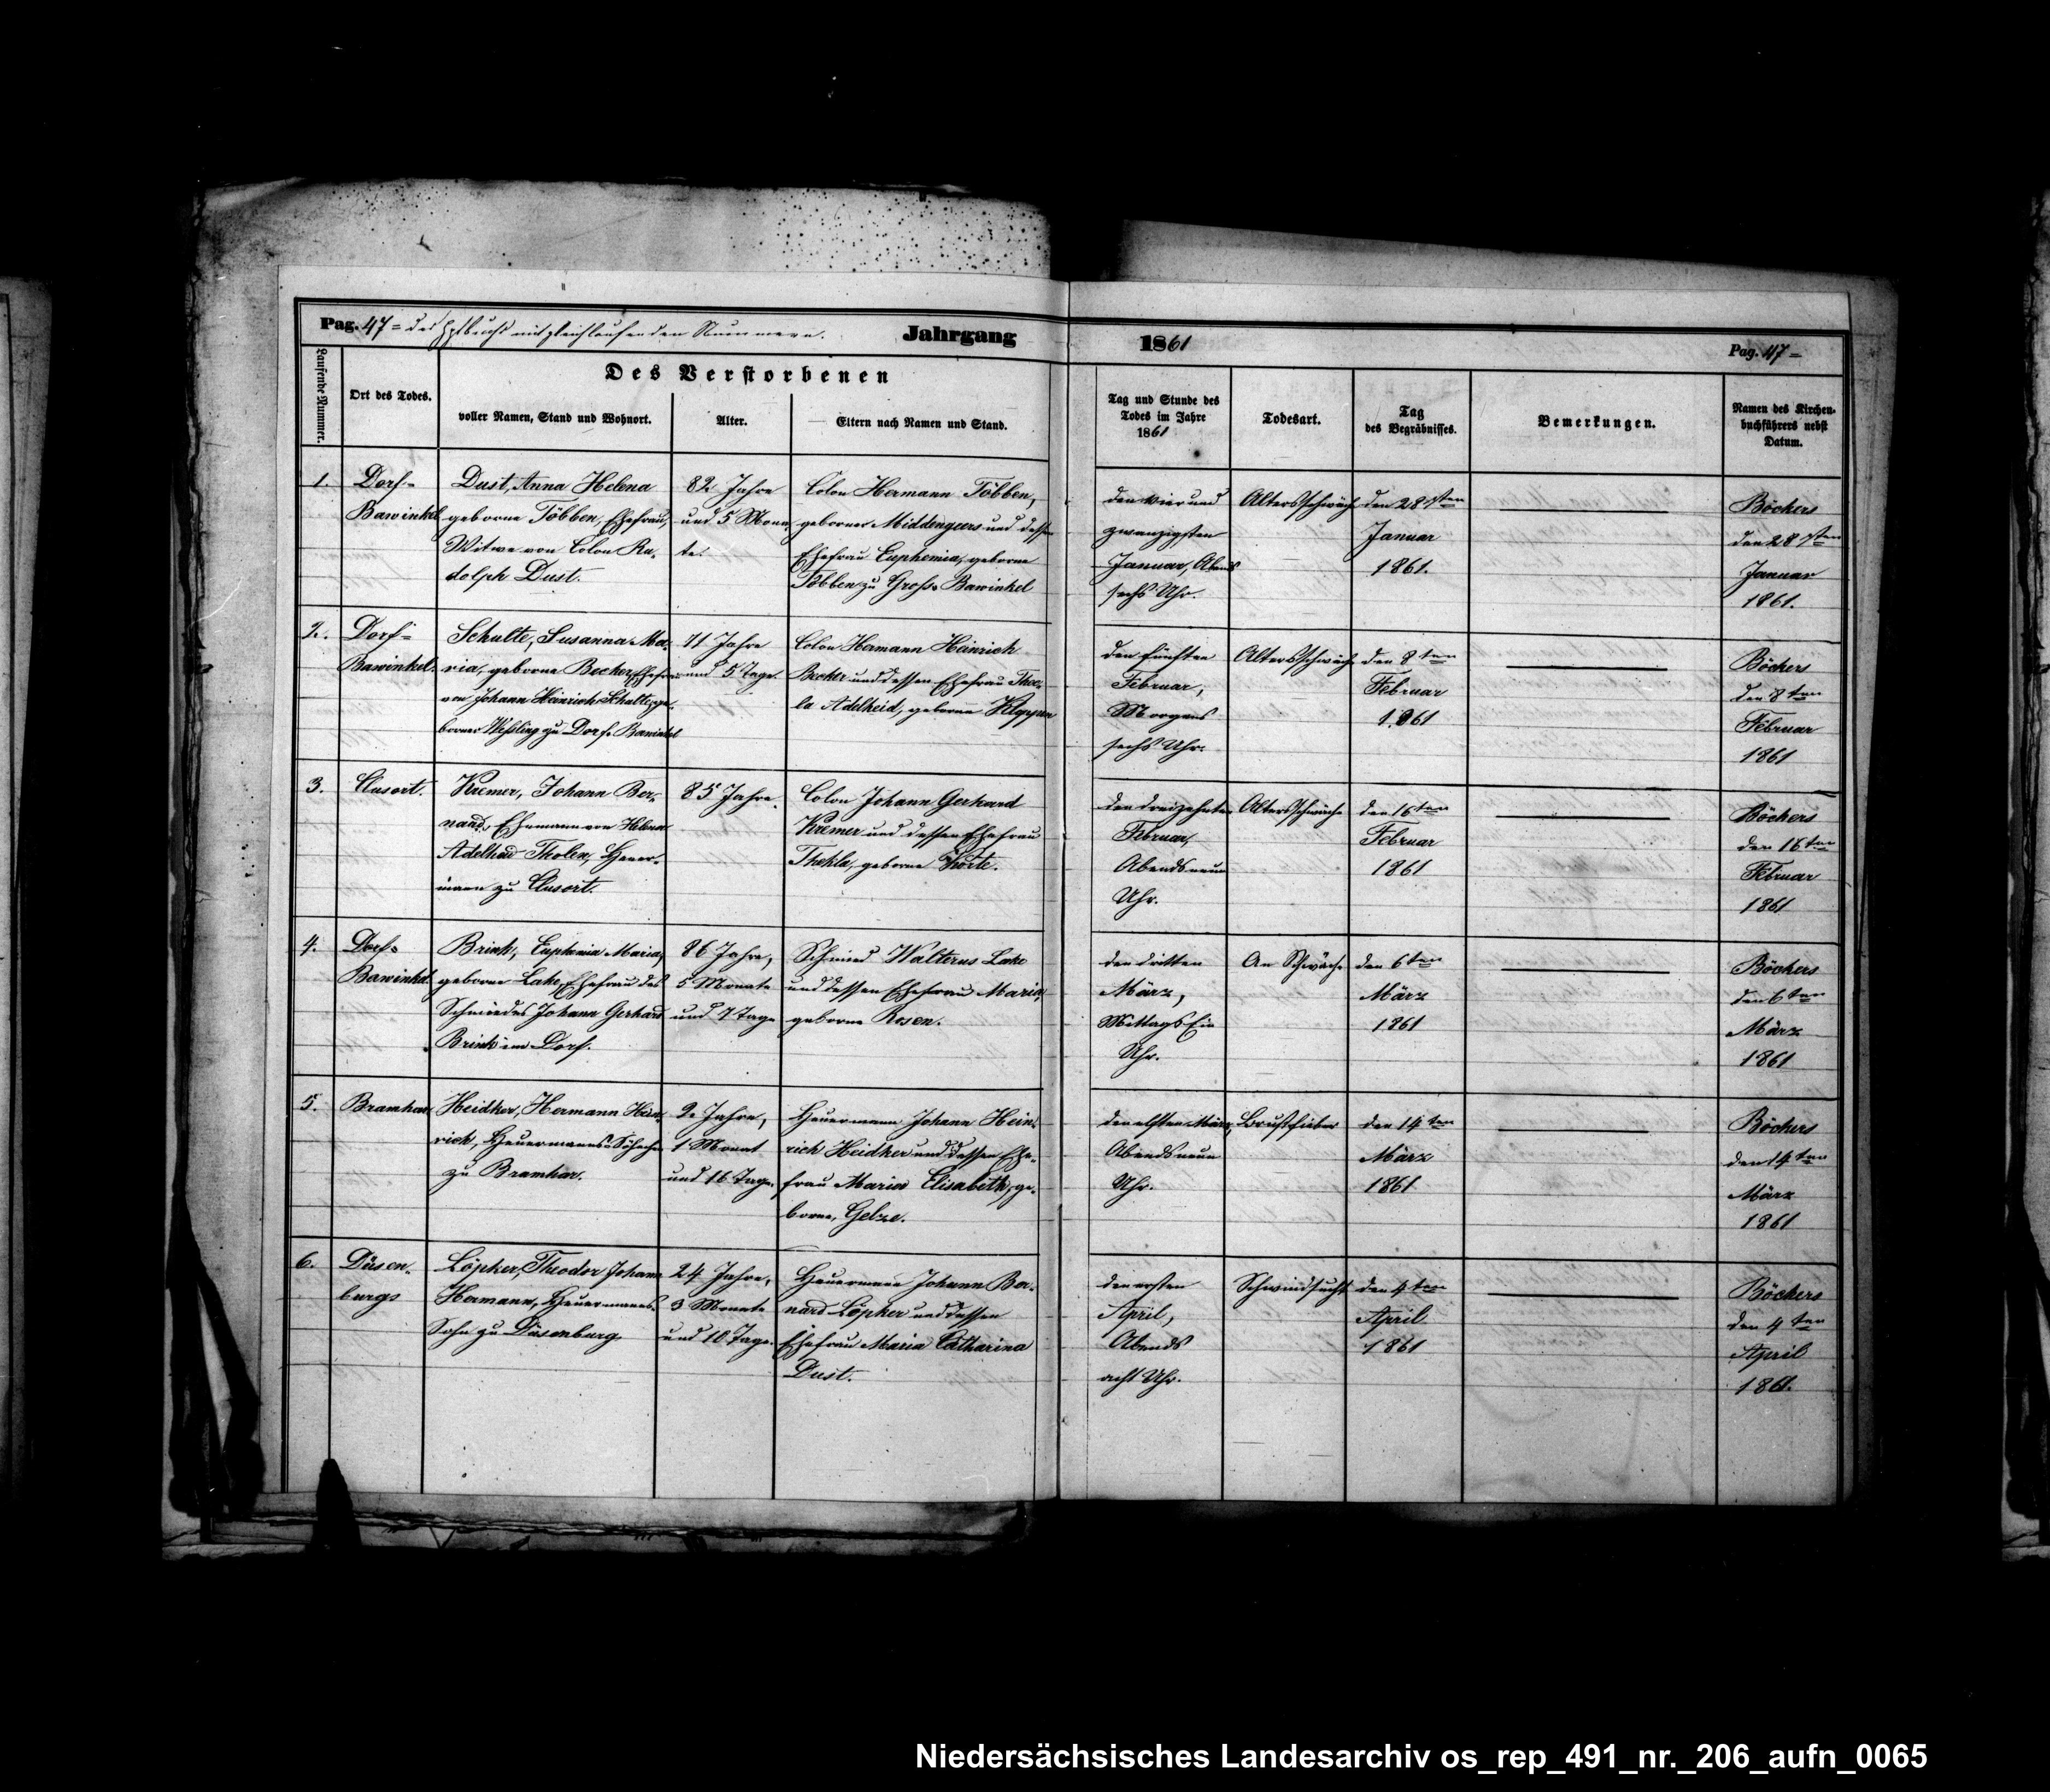 Pag. 47 = des Hptbuchs mit gleichlaufenden Nummern. Jahrgang 1861 Pag. 47 =
Laufende Nummer.
Ort des Todes.
Des Verstorbenen
voller Namen, Stand und Wohnort.
Alter.
Eltern nach Namen und Stand.
Tag und Stunde des
Todes im Jahre
1861
Todesart.
Tag
des Begräbnisses.
Bemerkungen.
Namen des Kirchen-
buchführers nebst
Datum.
1.
Dorf-
Bawinkel
Dust, Anna Helena
geborne Többen, Ehefrau,
Witwe von Colon Ru-
dolph Dust.
82 Jahre
und 5 Mona-
te.
Colon Hermann Többen,
geborner Middengers und dessen
Ehefrau Euphemia, geborne
Többen zu Groß- Bawinkel
den vier und
zwanzigsten
Januar, Abends
sechs Uhr.
Altersschwäche
den 28sten
Januar
1861.
Böckers
den 28sten
Januar
1861.
2.
Dorf-
Bawinkel.
Schulte, Susanna Ma-
ria, geborne Becker, Ehefrau
von Johann Heinrich Schulte, ge-
borner Weßling zu Dorf- Bawinkel
71 Jahre
und 5 Tage.
Colon Hermann Heinrich
Becker und dessen Ehefrau Thec-
la Adelheid, geborne
den fünften
Februar,
Morgens
sechs Uhr.
Altersschwäche
den 8ten
Februar
1861
Böckers
den 8ten
Februar
1861
3.
Clusort.
Kremer, Johann Ber-
nard, Ehemann von Helena
Adelheid Tholen, Heuer-
mann zu Clusort.
85 Jahre.
Colon Johann Gerhard
Kremer und dessen Ehefrau
Thekla, geborne Korte.
den dreizehnten
Februar,
Abends neun
Uhr.
Altersschwäche
den 16ten
Februar
1861
Böckers
den 16ten
Februar
1861
4.
Dorf-
Bawinkel.
Brink, Euphemia Maria,
geborne Lake, Ehefrau des
Schmiedes Johann Gerhard
Brink im Dorf.
86 Jahre,
5 Monate
und 7 Tage
Schmied Walterus Lake
und dessen Ehefrau Maria,
geborne Rosen.
den dritten
März,
Mittags Ein
Uhr.
An Schwäche
den 6ten
März
1861
Böckers
den 6ten
März
1861
5.
Bramhar
Heidker, Hermann Hein-
rich, Heuermanns-Söhnchen
zu Bramhar.
2 Jahre,
1 Monat
und 16 Tage.
Heuermann Johann Hein-
rich Heidker und dessen Ehe-
frau Maria Elisabeth, ge-
borne, Gelze.
den elften März,
Abends neun
Uhr.
Brustfieber
den 14ten
März
1861
Böckers
den 14ten
März
1861
6.
Düsen-
burg
Löpker, Theodor Johann
Hermann, Heuermanns-
Sohn zu Düsenburg
24 Jahre,
3 Monate
und 10 Tage.
Heuermann Johann Ber-
nard Löpker und dessen
Ehefrau Maria Catharina
Dust.
den ersten
April,
Abends
acht Uhr.
Schwindsucht
den 4ten
April
1861
Böckers
den 4ten
April
1861.
Niedersächsisches Landesarchiv os_rep_491_nr._206_aufn_0065